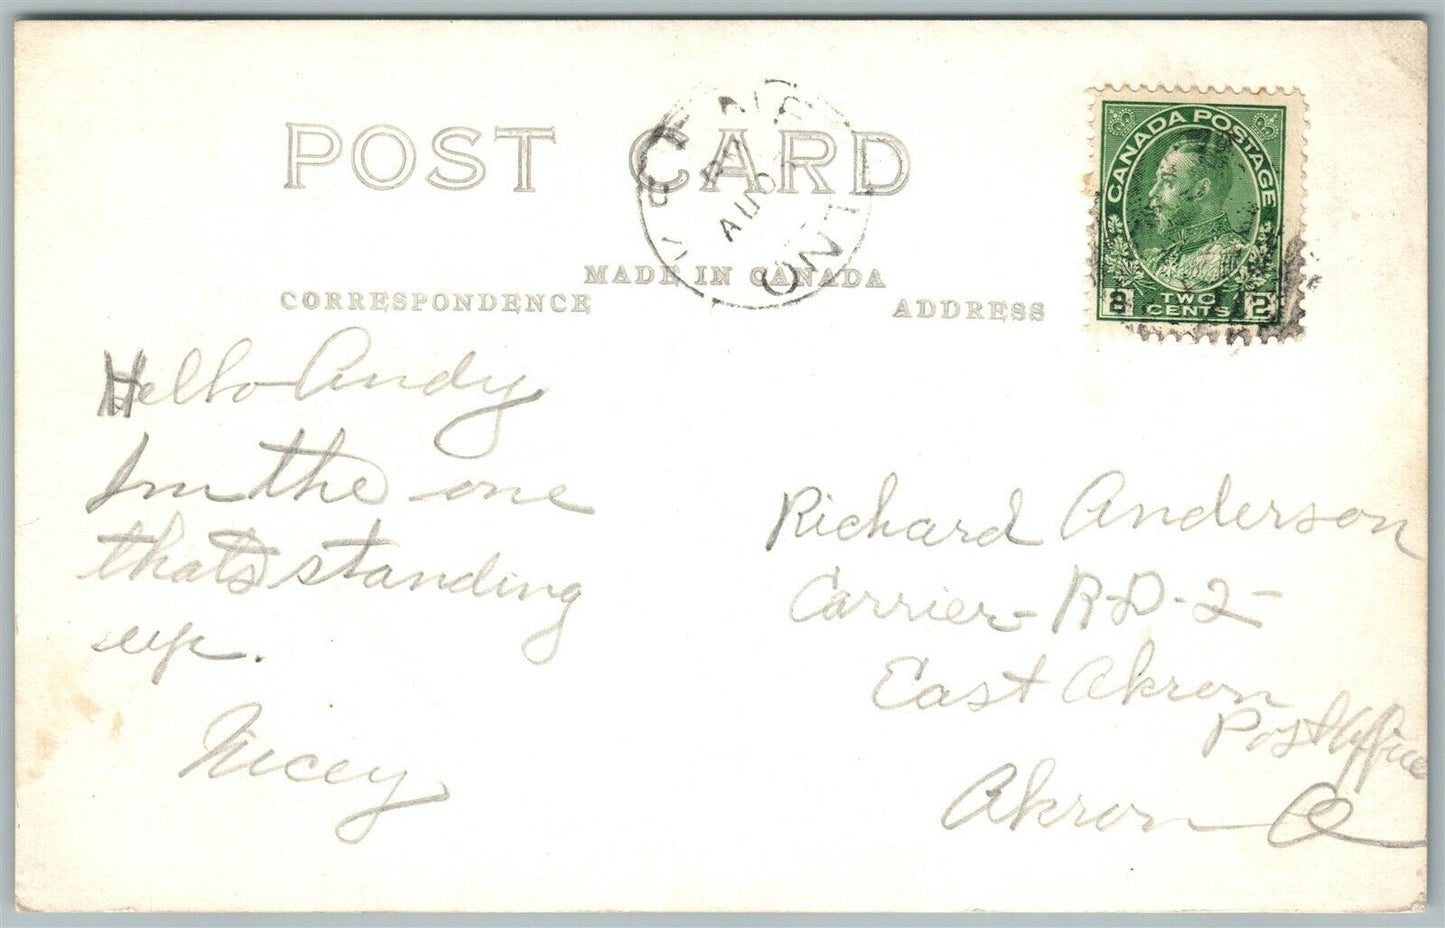 POST CARD
MADE IN CANADA
CORRESPONDENCE
ADDRESS
CANADA POSTAGE
2 TWO CENTS 2
AU
ONT
Hello Andy
Im the one
thats standing
up.
Richard Anderson
Carrier - R-D-2-
East Akron
Post Office
Akron O